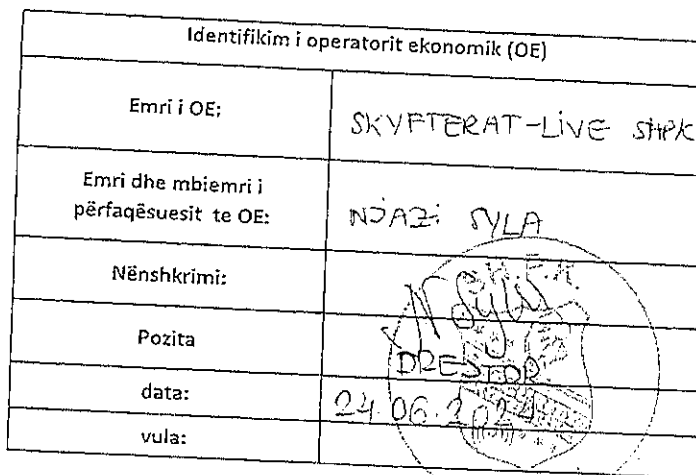 Identifikim i operatorit ekonomik (OE)
Emri i OE: SKYFTERAT-LIVE SHPK
Emri dhe mbiemri i
përfaqësuesit te OE: NJAZi SYLA
Nënshkrimi: N Syla
Pozita DREJTOR
data: 24.06.2024
vula: